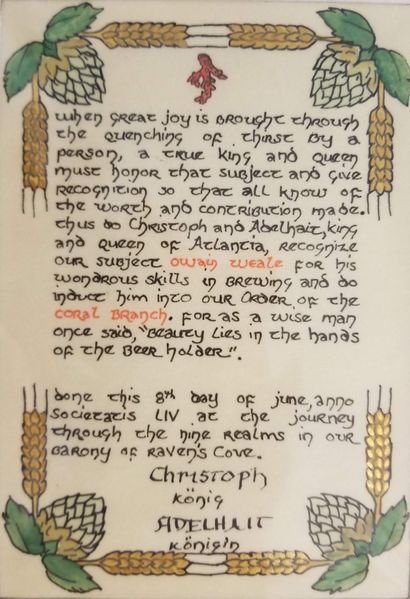 when great joy is brought through
the quenching of thirst by a
person, a true king and queen
must honor that subject and give
recognition so that all know of
the worth and contribution made.
thus do Christoph and Adelhait, king
and queen of Atlantia, recognize
our subject owain weale for his
wondrous skills in brewing and do
induct him into our Order of the
coral Branch. for as a wise man
once said, "Beauty lies in the hands
of the Beer holder".
done this 8th day of june, anno
Societatis LIV at the journey
through the nine realms in our
Barony of Raven's Cove.
Christoph
König
ADELHAIT
Königin